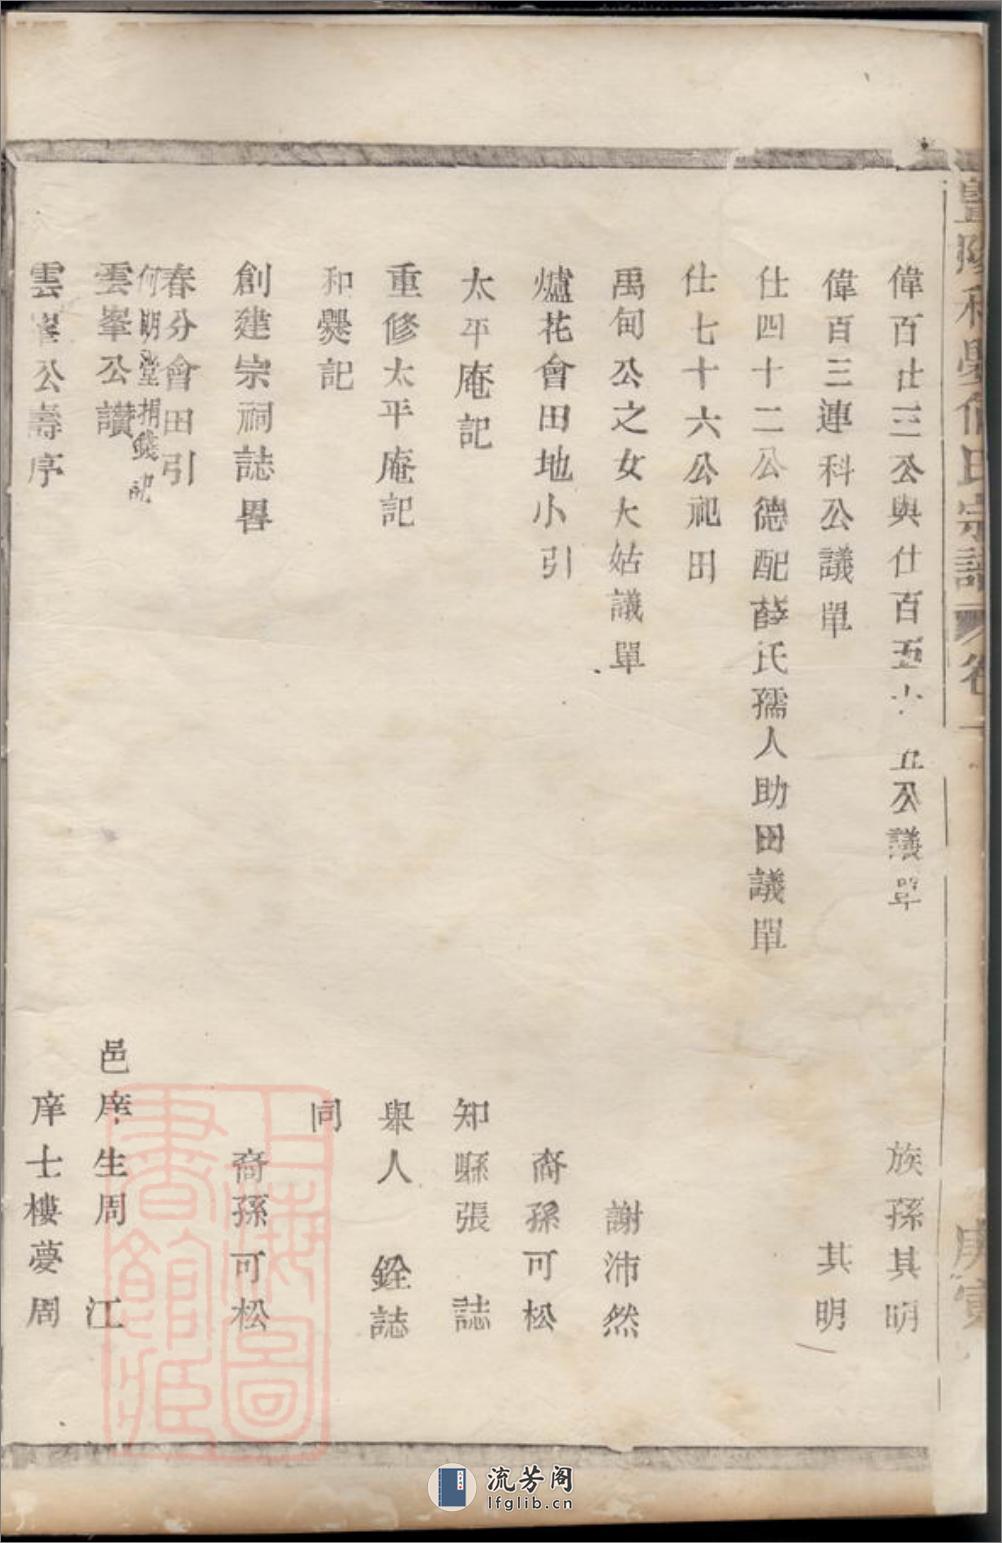 宗譜 卷
庚寅
偉百廿三公與仕百五十五公議單 族孫其明
偉百三連科公議單 其明
仕四十二公德配薛氏孺人助田議單
仕七十六公祀田
禹甸公之女大姑議單 謝沛然
爐花會田地小引 裔孫可松
太平庵記 知縣張 誌
重修太平庵記 舉人 銓誌
和爨記 同
創建宗祠誌畧 裔孫可松
春分會田引
何明堂捐錢記
雲峯公讚 邑庠生周 江
雲峯公壽序 庠士樓夢周
上海圖書館藏
流芳阁
lfglib.cn